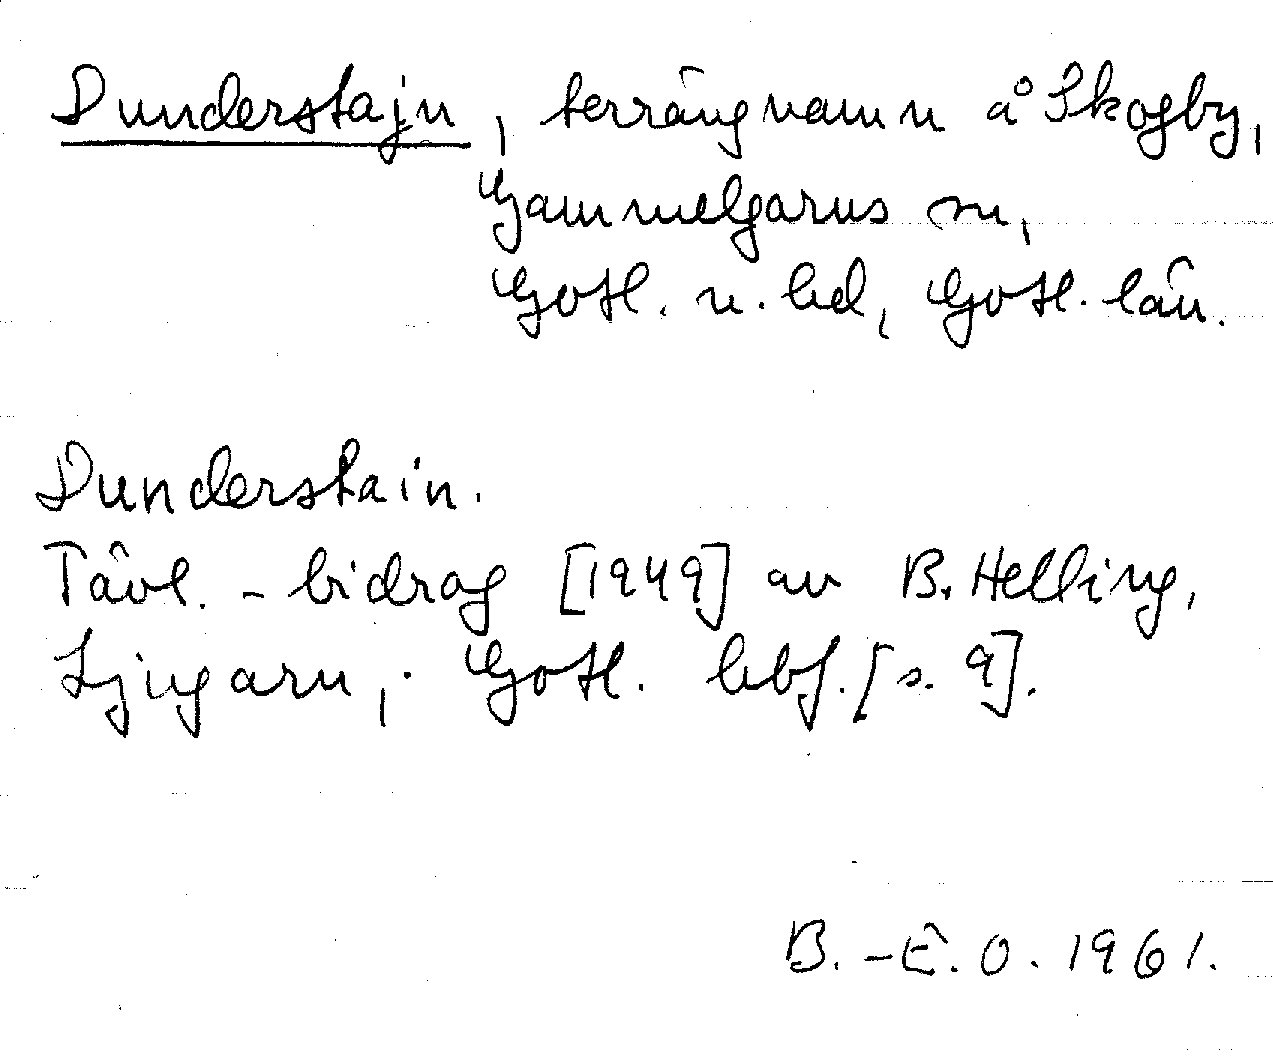 Dunderstajn, terrängnamn å Skogby,
Gammelgarns sn,
Gotl. n. hd, Gotl. län.
Dunderstain.
Tävl.-bidrag [1949] av B. Helling,
Ljugarn, Gotl. hbf. [s. 9].
B.-E. O. 1961.